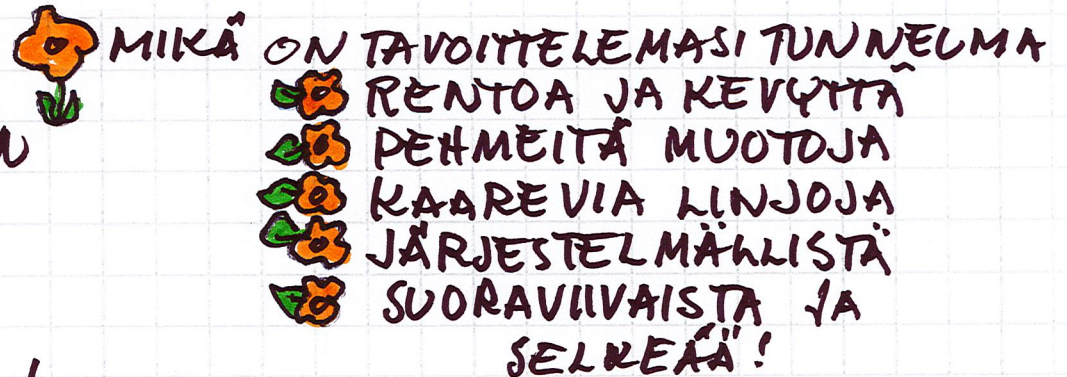 MIKÄ ON TAVOITTELEMASI TUNNELMA
RENTOA JA KEVYTTÄ
PEHMEITÄ MUOTOJA
KAAREVIA LINJOJA
JÄRJESTELMÄLLISTÄ
SUORAVIIVAISTA JA
SELKEÄÄ!